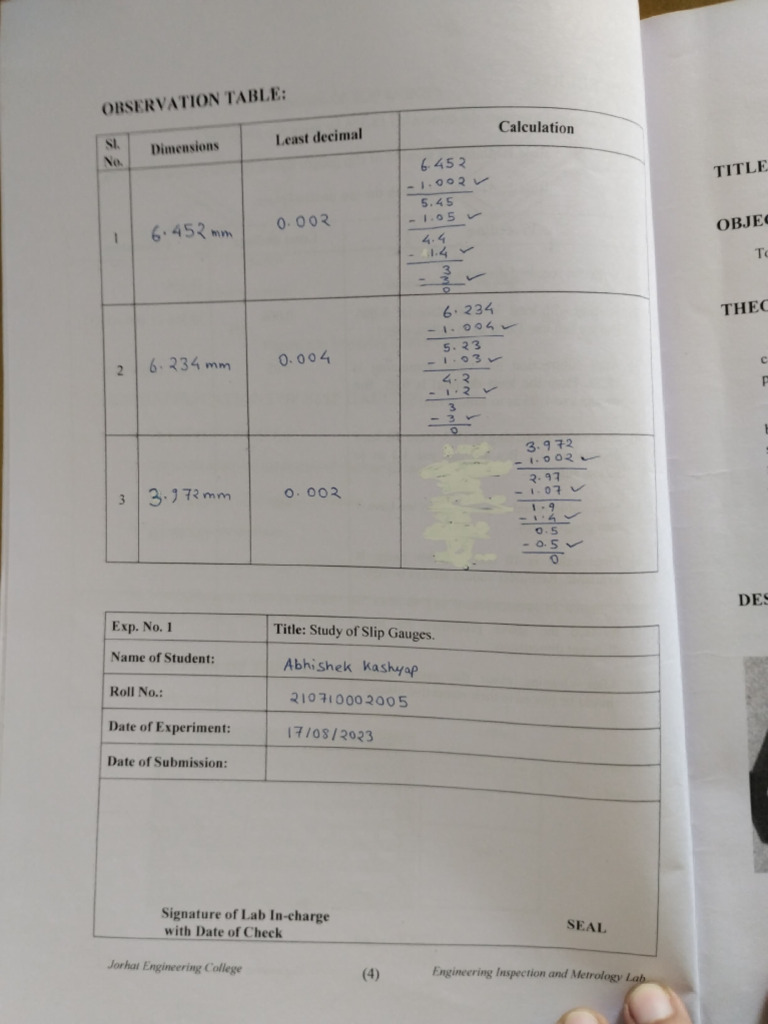 OBSERVATION TABLE:
Sl. No. Dimensions Least decimal Calculation
1 6.452 mm 0.002
6.452
- 1.002 ✓
5.45
- 1.05 ✓
4.4
- 1.4 ✓
3
- 3 ✓
0
2 6.234 mm 0.004
6.234
- 1.004 ✓
5.23
- 1.03 ✓
4.2
- 1.2 ✓
3
- 3 ✓
0
3 3.972 mm 0.002
3.972
- 1.002 ✓
2.97
- 1.07 ✓
1.9
- 1.4 ✓
0.5
- 0.5 ✓
0
Exp. No. 1 Title: Study of Slip Gauges.
Name of Student: Abhishek Kashyap
Roll No.: 210710002005
Date of Experiment: 17/08/2023
Date of Submission:
Signature of Lab In-charge
with Date of Check
SEAL
Jorhat Engineering College (4) Engineering Inspection and Metrology Lab
TITLE
OBJEC
To
THEO
DES